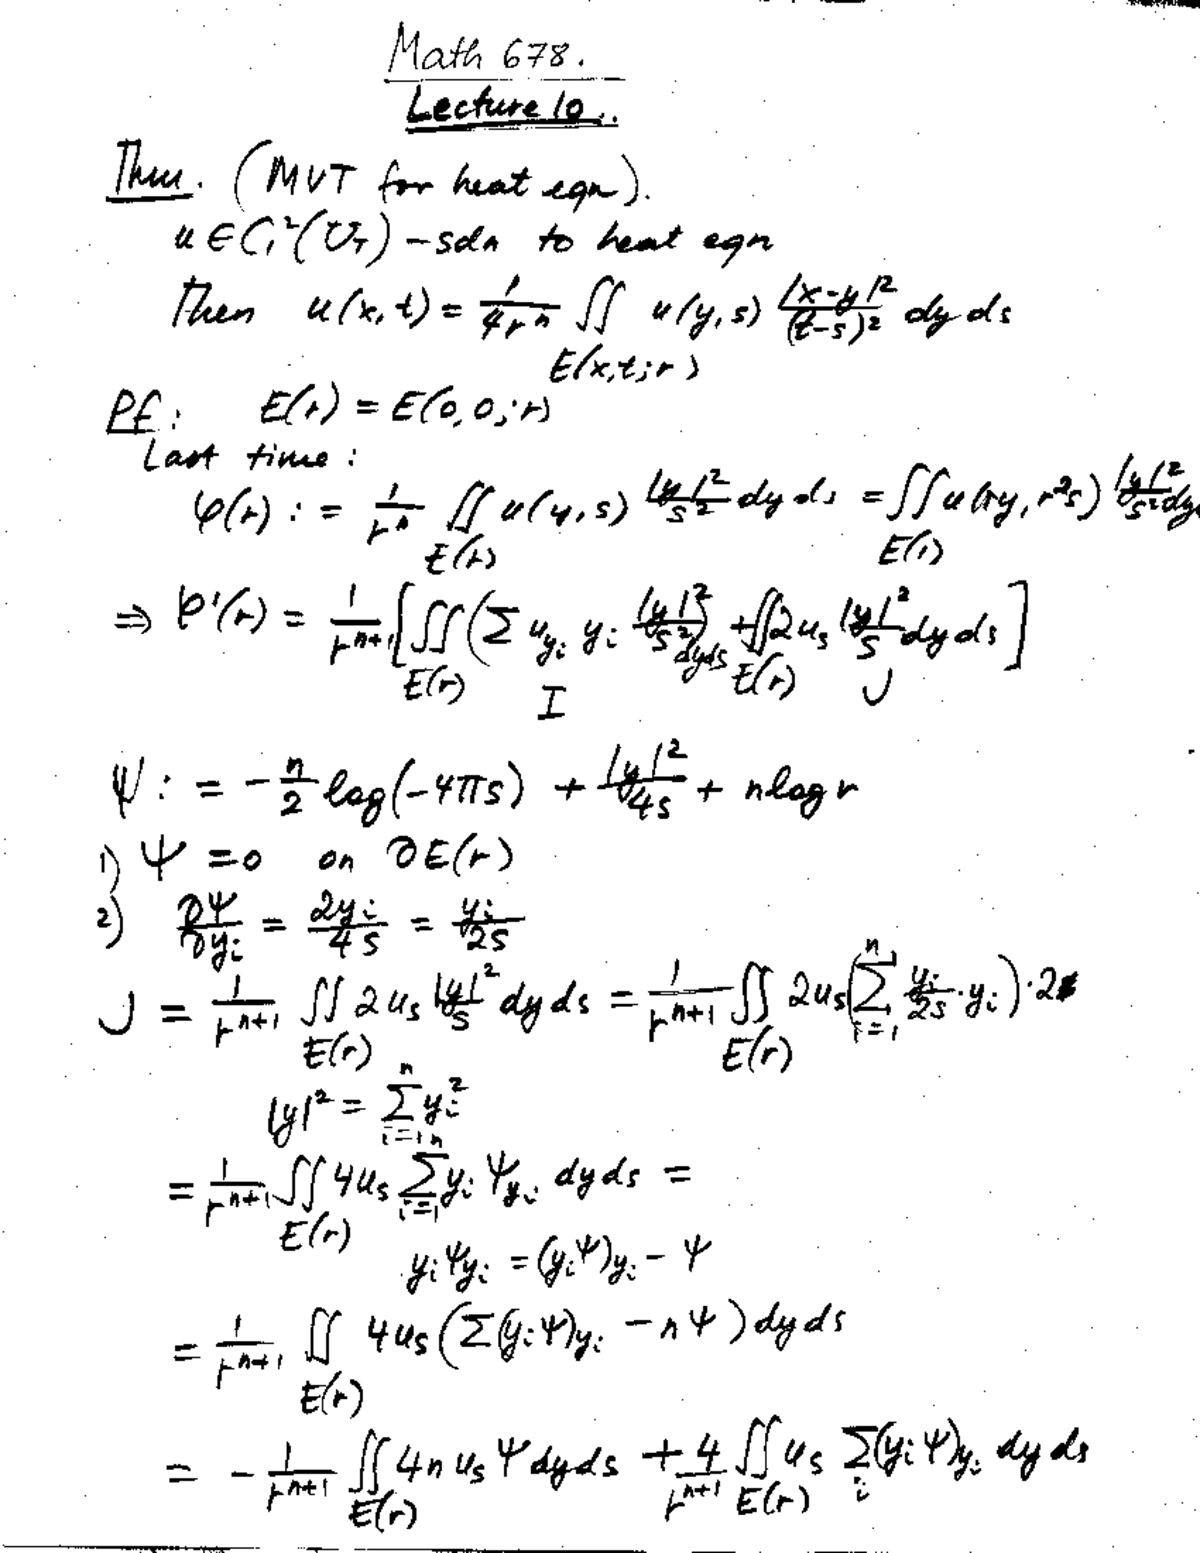 Math 678.
Lecture 10.
Thm. (MVT for heat eqn).
u ∈ C₁²(U_T) – soln to heat eqn
Then u(x,t) = 1/(4rⁿ) ∬_{E(x,t;r)} u(y,s) |x-y|²/(t-s)² dy ds
Pf: E(r) = E(0,0;r)
Last time:
φ(r) := 1/rⁿ ∬_{E(r)} u(y,s) |y|²/s² dy ds = ∬_{E(1)} u(ry, r²s) |y|²/s² dy
⇒ φ'(r) = 1/rⁿ⁺¹ [∬_{E(r)} (Σ u_{y_i} y_i |y|²/s²) dyds + ∬_{E(r)} 2u_s |y|²/s dy ds]
I J
Ψ := -n/2 log(-4πs) + |y|²/4s + n log r
1) Ψ = 0 on ∂E(r)
2) ∂Ψ/∂y_i = 2y_i/4s = y_i/2s
J = 1/rⁿ⁺¹ ∬_{E(r)} 2u_s |y|²/s dy ds = 1/rⁿ⁺¹ ∬_{E(r)} 2u_s (Σ_{i=1}^n y_i/2s · y_i) · 2
|y|² = Σ_{i=1}^n y_i²
= 1/rⁿ⁺¹ ∬_{E(r)} 4u_s Σ_{i=1}^n y_i Ψ_{y_i} dy ds =
y_i Ψ_{y_i} = (y_i Ψ)_{y_i} - Ψ
= 1/rⁿ⁺¹ ∬_{E(r)} 4u_s (Σ(y_i Ψ)_{y_i} - nΨ) dy ds
= - 1/rⁿ⁺¹ ∬_{E(r)} 4n u_s Ψ dy ds + 4/rⁿ⁺¹ ∬_{E(r)} u_s Σ_i (y_i Ψ)_{y_i} dy ds